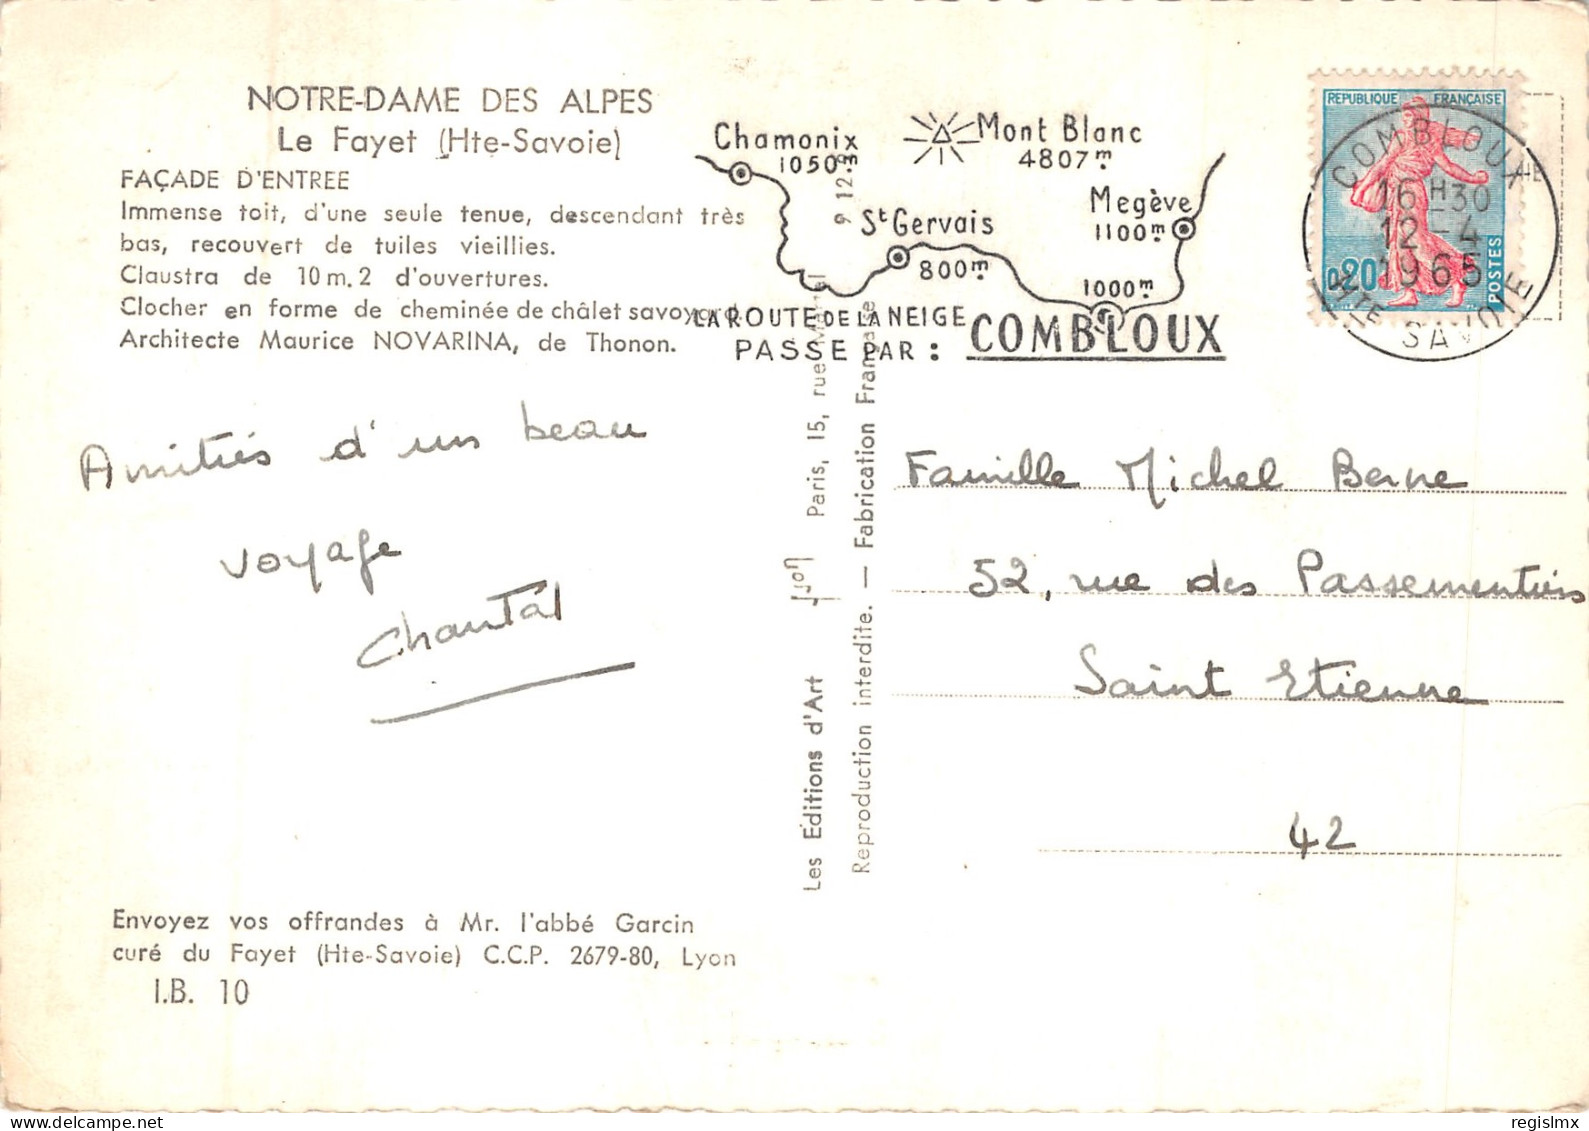 NOTRE-DAME DES ALPES
Le Fayet (Hte-Savoie)
FAÇADE D'ENTREE
Immense toit, d'une seule tenue, descendant très
bas, recouvert de tuiles vieillies.
Claustra de 10 m. 2 d'ouvertures.
Clocher en forme de cheminée de châlet savoyard.
Architecte Maurice NOVARINA, de Thonon.
Amitiés d'un beau
voyage
Chantal
Envoyez vos offrandes à Mr. l'abbé Garcin
curé du Fayet (Hte-Savoie) C.C.P. 2679-80, Lyon
I.B. 10
Chamonix
1050m
Mont Blanc
4807m
St Gervais
800m
Megève
1100m
1000m
LA ROUTE DE LA NEIGE
PASSE PAR : COMBLOUX
Les Editions d'Art Yvon Paris, 15, rue
Reproduction interdite. — Fabrication Française
REPUBLIQUE FRANÇAISE
0,20
POSTES
COMBLOUX
16H30
12-4
1965
HTE SAVOIE
Famille Michel Berne
52, rue des Passementiers
Saint Etienne
42
regislmx